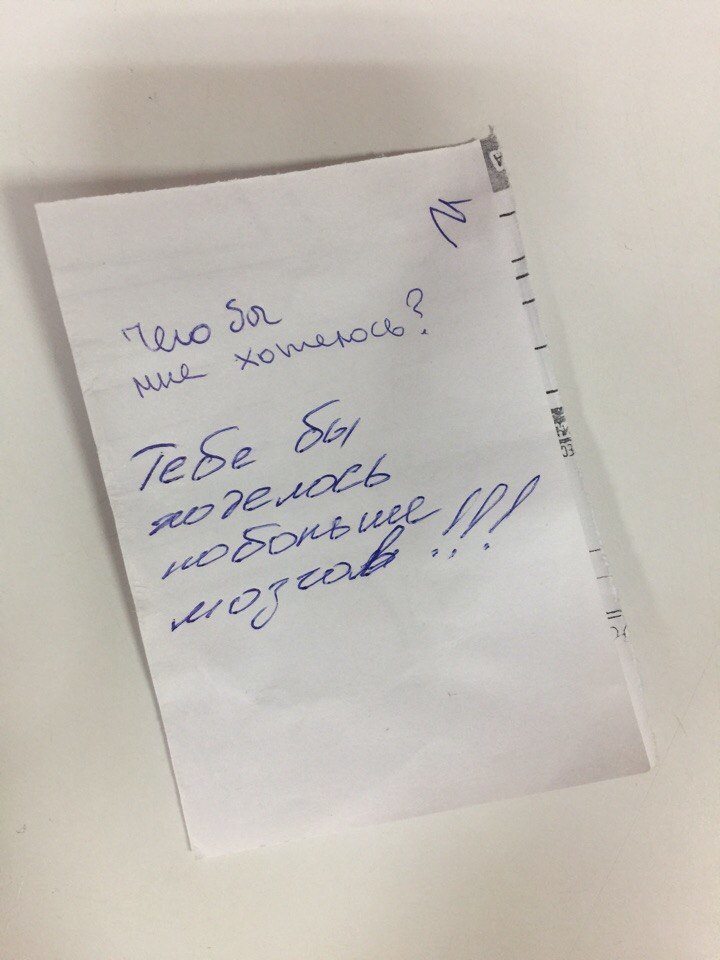 Чего бы
мне хотелось?
Тебе бы
хотелось
побольше
мозгов!!!